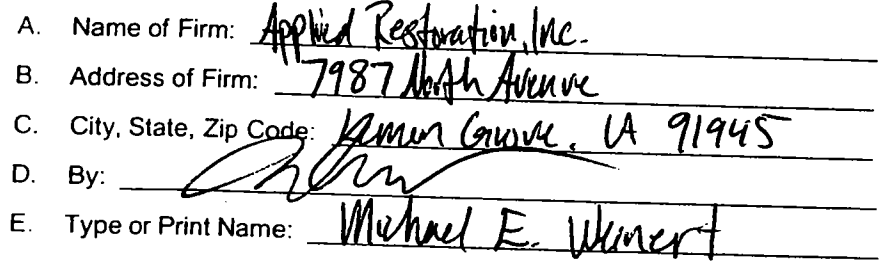 A. Name of Firm: Applied Restoration, Inc.
B. Address of Firm: 7987 North Avenue
C. City, State, Zip Code: Lemon Grove, CA 91945
D. By:
E. Type or Print Name: Michael E. Weinert